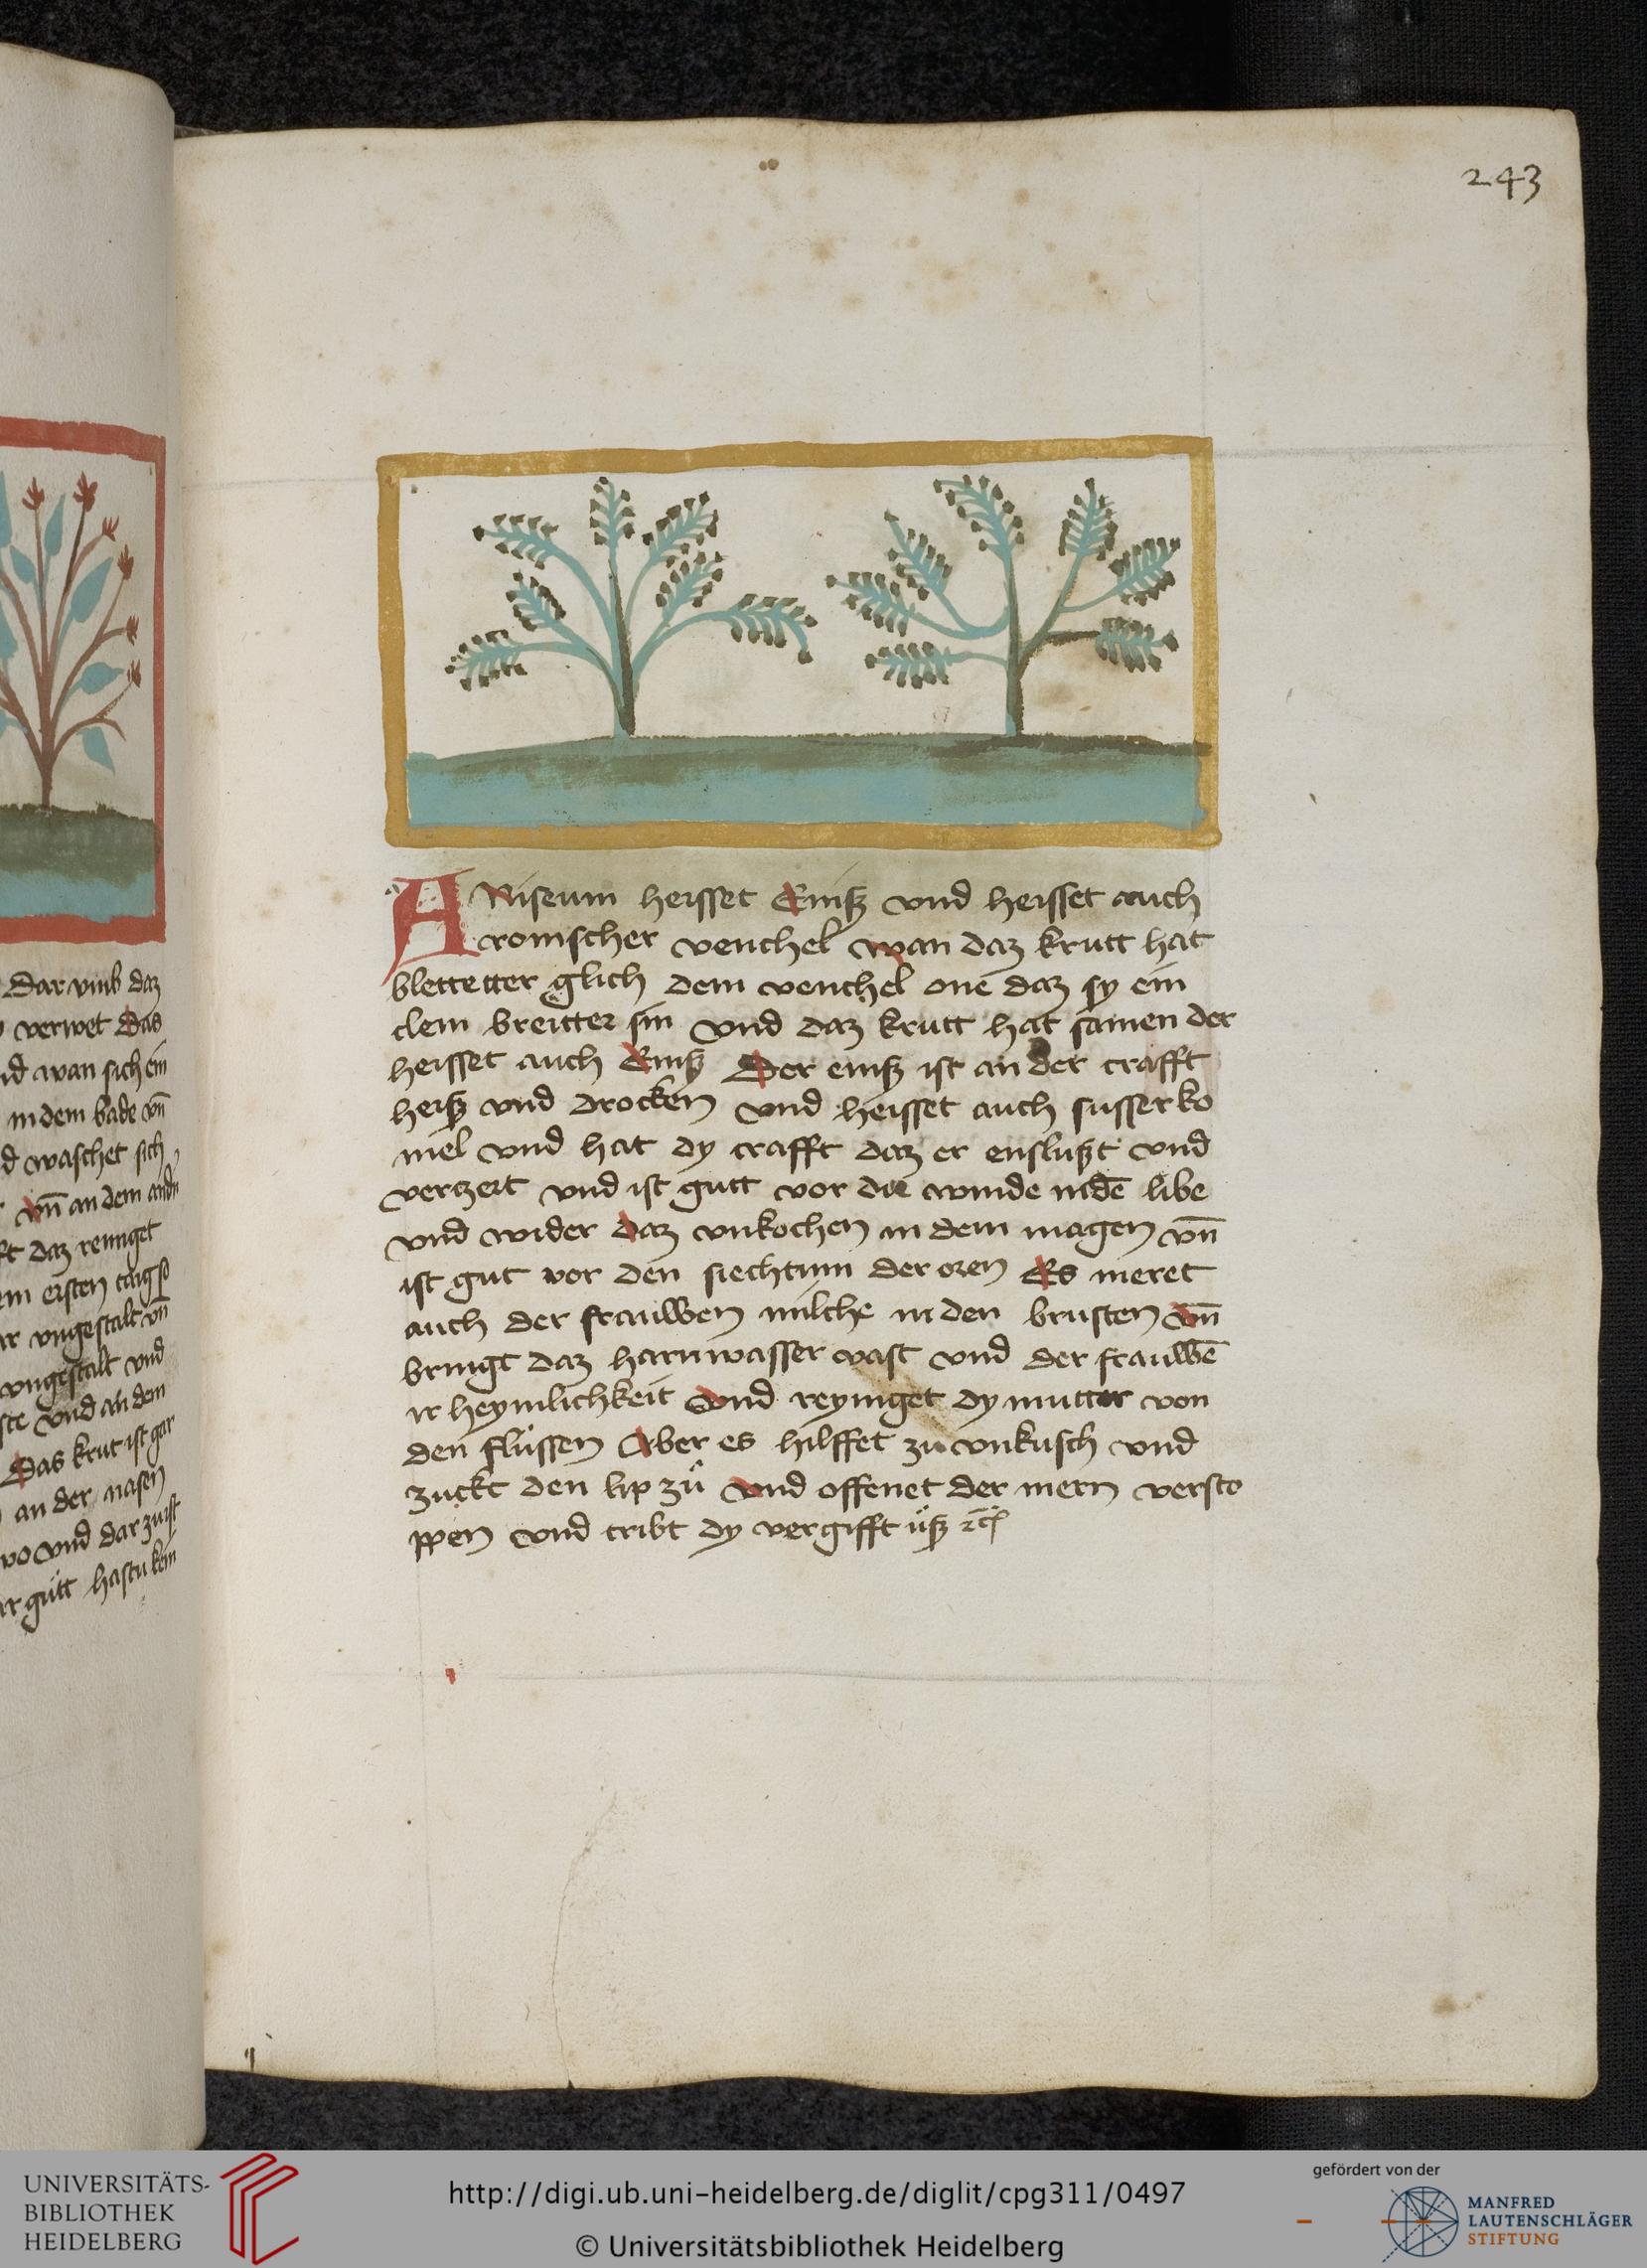 243
ANiseum heisset Enisz vnd heisset auch
romscher venchel wan daz krutt hat
blettetter glich dem venchel one daz sy ein
clem breitter sin vnd daz krutt hat samen der
heisset auch Enisz Der enisz ist an der crafft
heisz vnd drocken vnd heisset auch susser ko
mel vnd hat dy crafft daz er enslußt vnd
verzert vnd ist gutt vor die winde in dē libe
vnd wider daz vnkochen in dem magen vn̄
ist gut vor den siechtum der oren Es meret
auch der frauwen milche in den brusten vn̄
bringt daz harnwasser vast vnd der frauwē
ir heymlichkeit vnd reyniget dy mutter von
den flussen Aber es hilffet zu vnkusch vnd
zuckt den lip zů vnd offenet der mern versto
ppen vnd tribt dy vergifft usz
Dar vmb daz
verwet Das
wan sich ein
in dem bade vn̄
waschet sich
vn̄ an dem
daz reiniget
ersten tag so
vngestalt vn̄
vngestalt vnd
vnd an dem
Das krut ist gar
an der nasen
vnd dar zu ist
gutt hastu kein
UNIVERSITÄTS-
BIBLIOTHEK
HEIDELBERG
http://digi.ub.uni-heidelberg.de/diglit/cpg311/0497
© Universitätsbibliothek Heidelberg
gefördert von der
MANFRED
LAUTENSCHLÄGER
STIFTUNG